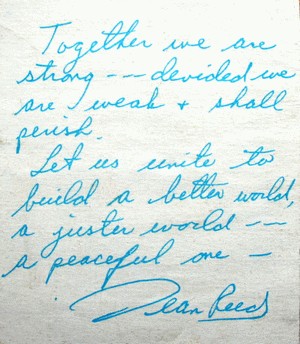 Together we are
strong -- divided we
are weak + shall
perish.
Let us unite to
build a better world,
a juster world --
a peaceful one -
Dean Reed